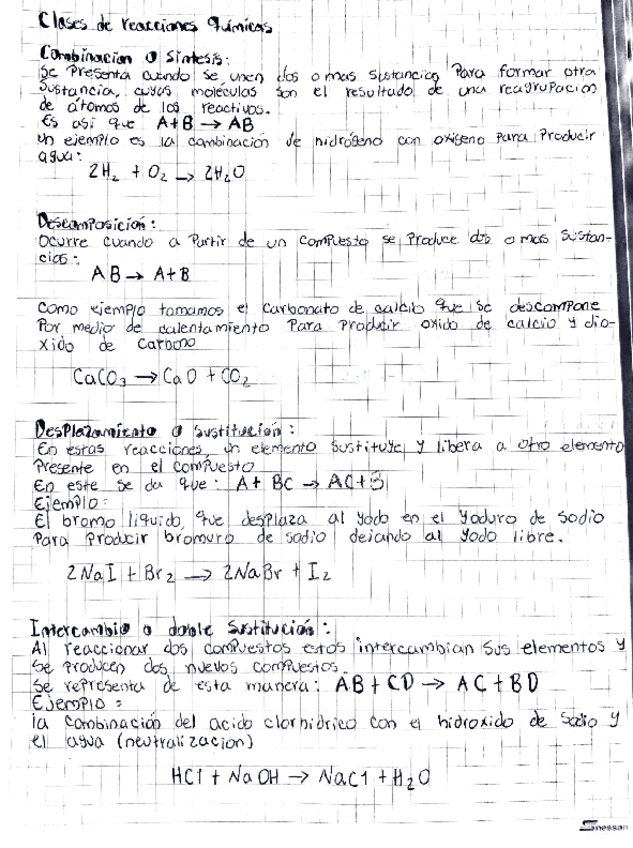 Clases de reacciones Químicas
Combinacion o Sintesis:
Se Presenta cuando se unen dos o mas sustancias Para formar otra
Sustancia, cuyas moléculas son el resultado de una reagrupacion
de átomos de los reactivos.
Es asi que A+B → AB
un ejemplo es la combinación de hidrógeno con oxigeno Para Producir
agua:
2H₂ + O₂ → 2H₂O
Descomposición:
Ocurre cuando a Partir de un compuesto se Produce dos o mas sustan-
cias:
AB → A+B
como ejemplo tomamos el carbonato de calcio que se descompone
Por medio de calentamiento Para Producir oxido de calcio y dio-
xido de carbono
CaCO₃ → CaO + CO₂
Desplazamiento o sustitución:
En estas reacciones, un elemento sustituye y libera a otro elemento
Presente en el compuesto
En este se da que: A+ BC → AC+B
Ejemplo:
El bromo liquido, que desplaza al yodo en el yoduro de sodio
Para Producir bromuro de sodio dejando al yodo libre.
2NaI + Br₂ → 2NaBr + I₂
Intercambio o doble sustitución:
Al reaccionar dos compuestos estos intercambian sus elementos y
se Producen dos nuevos compuestos.
Se representa de esta manera: AB + CD → AC + BD
Ejemplo:
la combinación del acido clorhidrico con el hidroxido de sodio y
el agua (neutralizacion)
HCl + NaOH → NaCl + H₂O
nessan